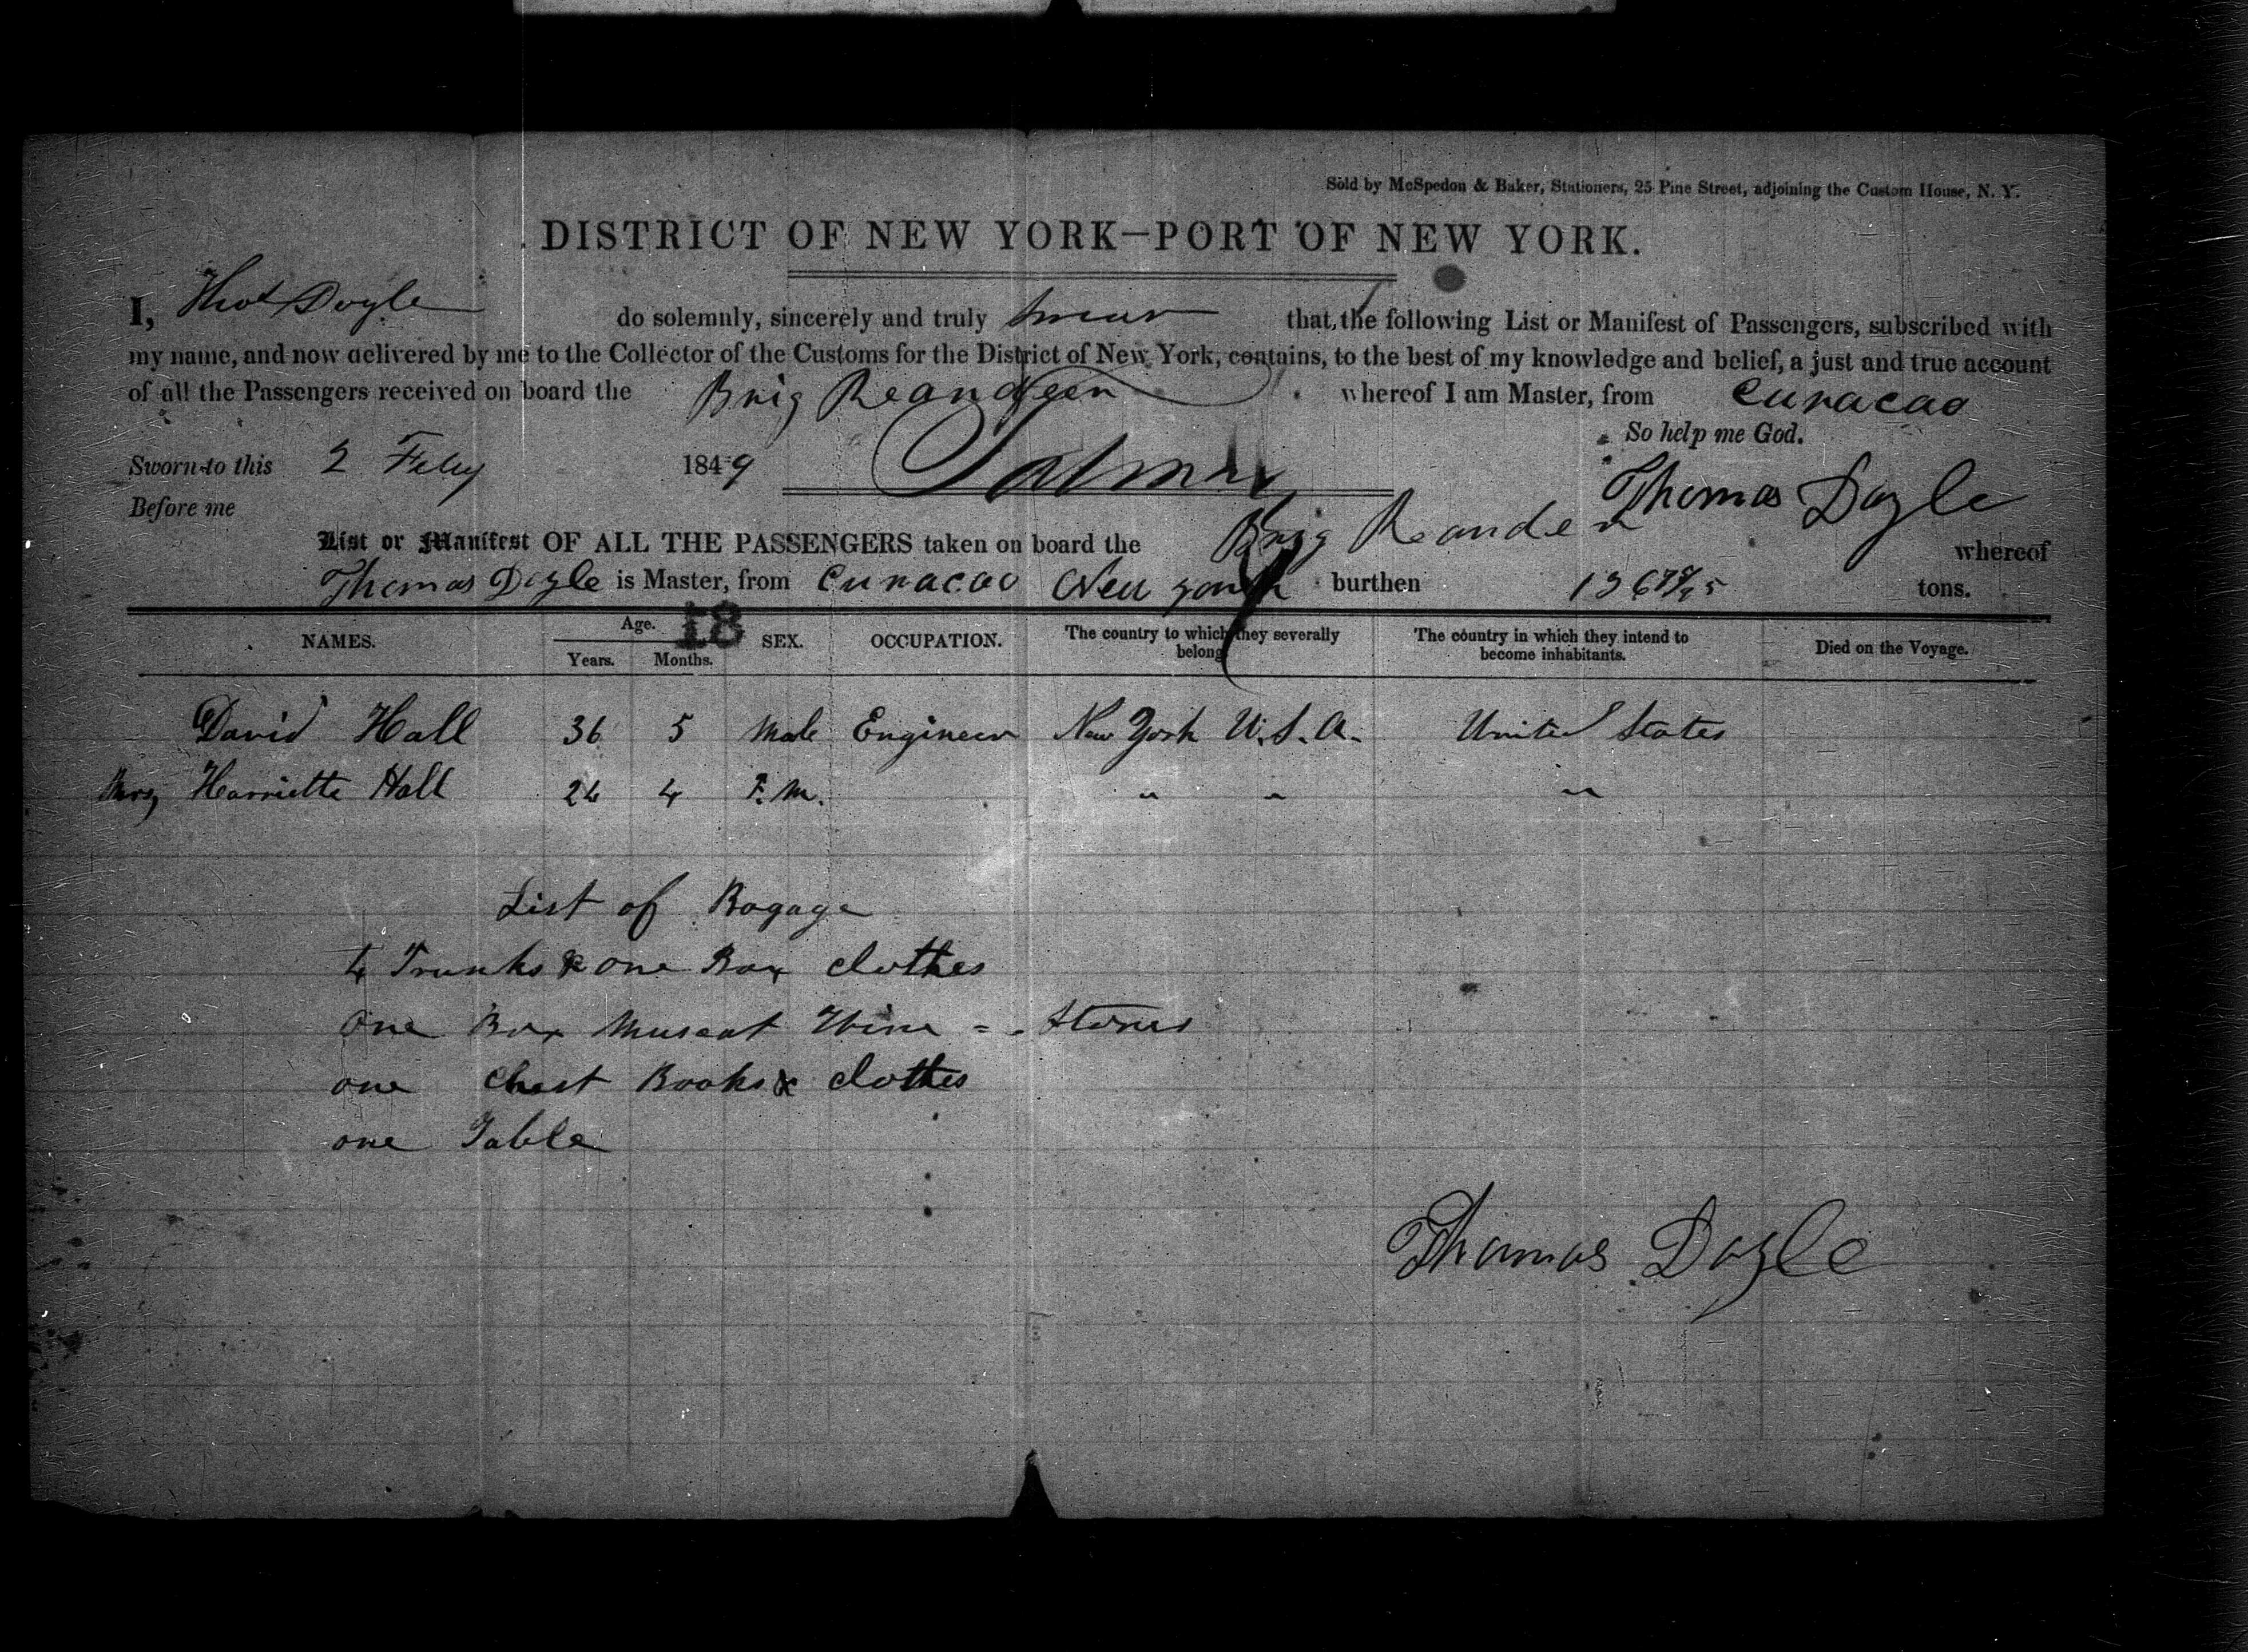 Sold by McSpedon & Baker, Stationers, 25 Pine Street, adjoining the Custom House, N. Y.
DISTRICT OF NEW YORK—PORT OF NEW YORK.
I, Thos Doyle do solemnly, sincerely and truly swear that the following List or Manifest of Passengers, subscribed with
my name, and now delivered by me to the Collector of the Customs for the District of New York, contains, to the best of my knowledge and belief, a just and true account
of all the Passengers received on board the Brig whereof I am Master, from Curacao
So help me God.
Sworn to this 2 Feby 1849
Thomas Doyle
Before me
List or Manifest OF ALL THE PASSENGERS taken on board the Brig whereof
Thomas Doyle is Master, from Curacao New York burthen tons.
18
NAMES. Age. Years. Months. SEX. OCCUPATION. The country to which they severally belong. The country in which they intend to become inhabitants. Died on the Voyage.
David Hall 36 5 Male Engineer New York U.S.A. United States
Mrs Harriette Hall 24 4 F.M. " " "
List of Bagage
4 Trunks & one Box clothes
One Box Muscat Wine = Stores
one Chest Books & clothes
one Table
Thomas Doyle